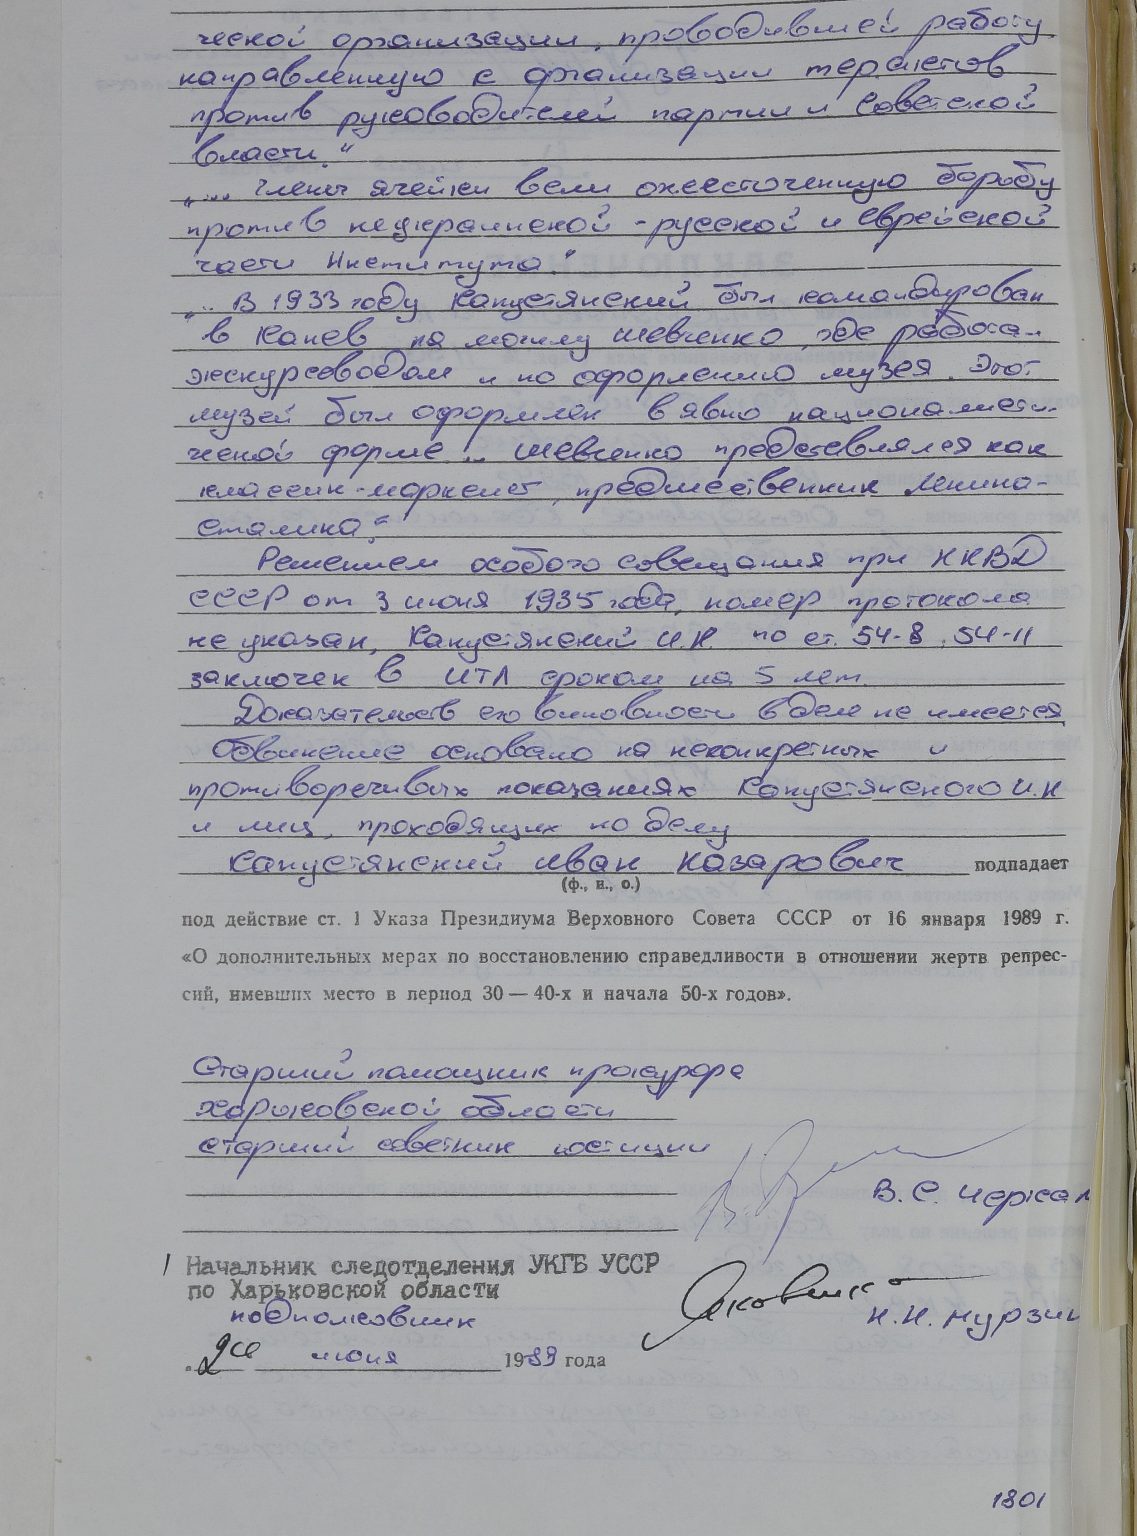 ческой организации, проводившей работу
направленную к организации терактов
против руководителей партии и советской
власти."
"... Члены ячейки вели ожесточенную борьбу
против неукраинской - русской и еврейской
части Института."
"... В 1933 году Капустянский был командирован
в Канев на могилу Шевченко, где работал
экскурсоводом и по оформлению музея. Этот
музей был оформлен в явно националисти-
ческой форме ... Шевченко представлялся как
классик-марксист, предшественник Ленина-
Сталина."
Решением особого совещания при НКВД
СССР от 3 июня 1935 года, номер протокола
не указан, Капустянский И.Н. по ст. 54-8, 54-11
заключен в ИТЛ сроком на 5 лет.
Доказательств его виновности в деле не имеется,
Обвинение основано на неконкретных и
противоречивых показаниях Капустянского И.Н
и лиц, проходящих по делу
Капустянский Иван Назарович подпадает
(ф., и., о.)
под действие ст. 1 Указа Президиума Верховного Совета СССР от 16 января 1989 г.
«О дополнительных мерах по восстановлению справедливости в отношении жертв репрес-
сий, имевших место в период 30 — 40-х и начала 50-х годов».
Старший помощник прокурора
Харьковской области
старший советник юстиции
В. С.
Начальник следотделения УКГБ УССР
по Харьковской области
подполковник
Н. Н. Мурзин
июня 1989 года
1801